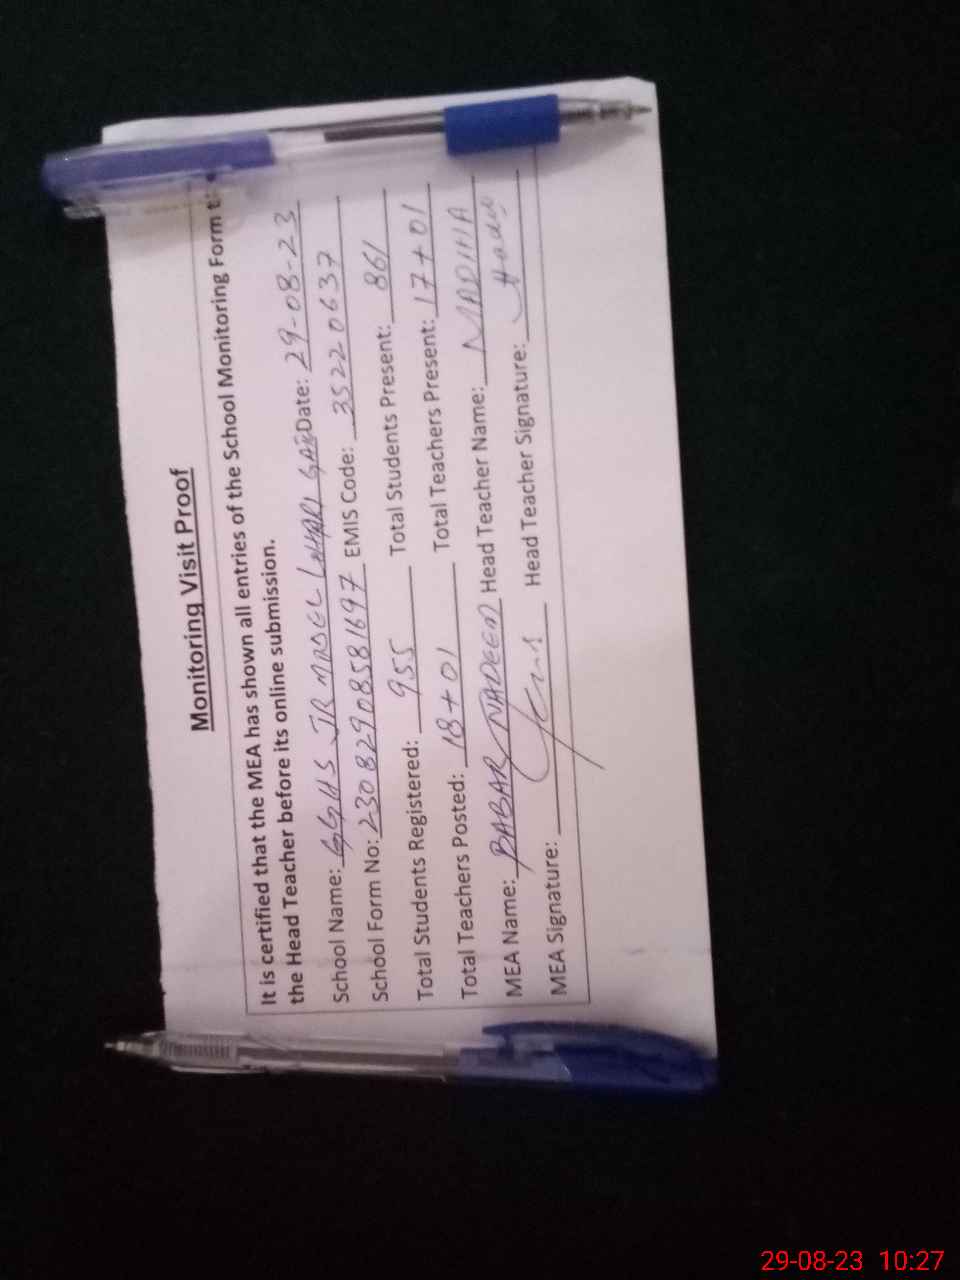 Monitoring Visit Proof
It is certified that the MEA has shown all entries of the School Monitoring Form t
the Head Teacher before its online submission.
School Name: GGHS JR MODEL LOHARI GATE Date: 29-08-23
School Form No: 23082908581697 EMIS Code: 35220637
Total Students Registered: 955 Total Students Present: 861
Total Teachers Posted: 18+01 Total Teachers Present: 17+01
MEA Name: BABAR NADEEM Head Teacher Name: MADIHA
MEA Signature: Head Teacher Signature:
29-08-23 10:27